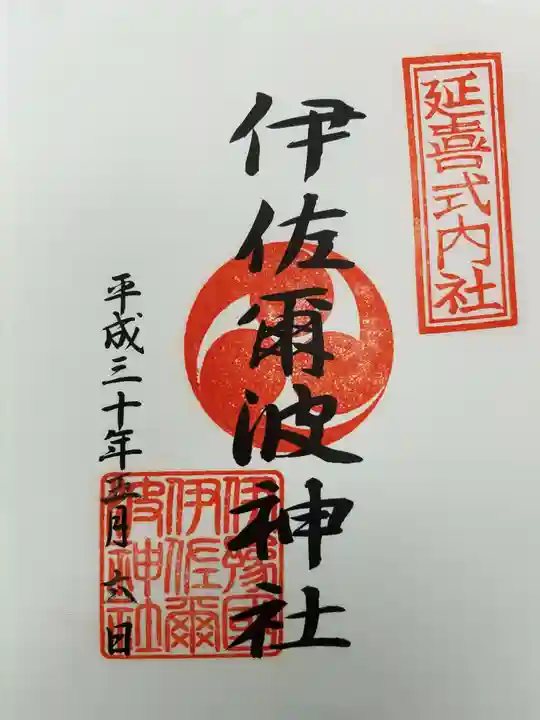 延喜式内社
伊佐爾波神社
伊豫國
伊佐爾
波神社
平成三十年五月六日